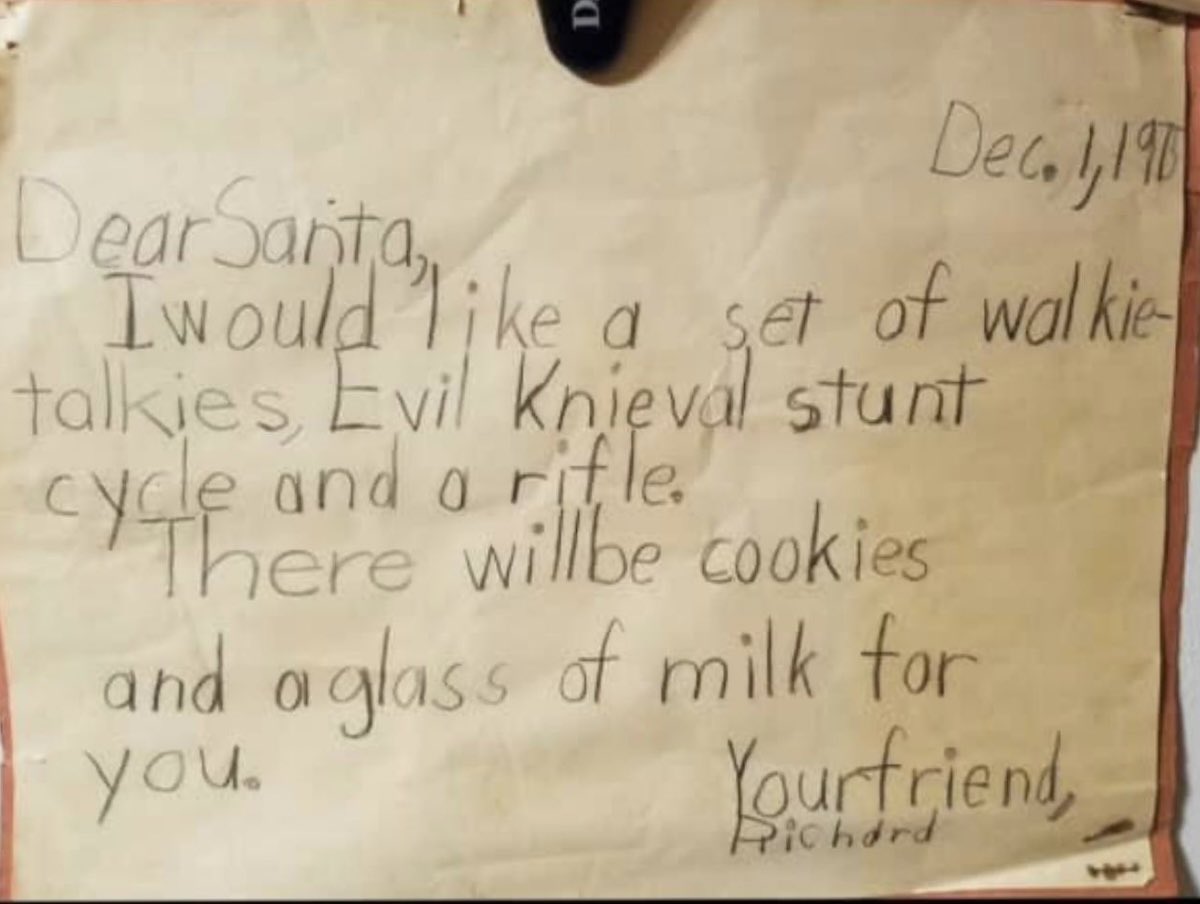 D
Dec. 1, 197
Dear Santa,
I would like a set of walkie-
talkies, Evil Knieval stunt
cycle and a rifle.
There will be cookies
and a glass of milk for
you.
Your friend,
Richard